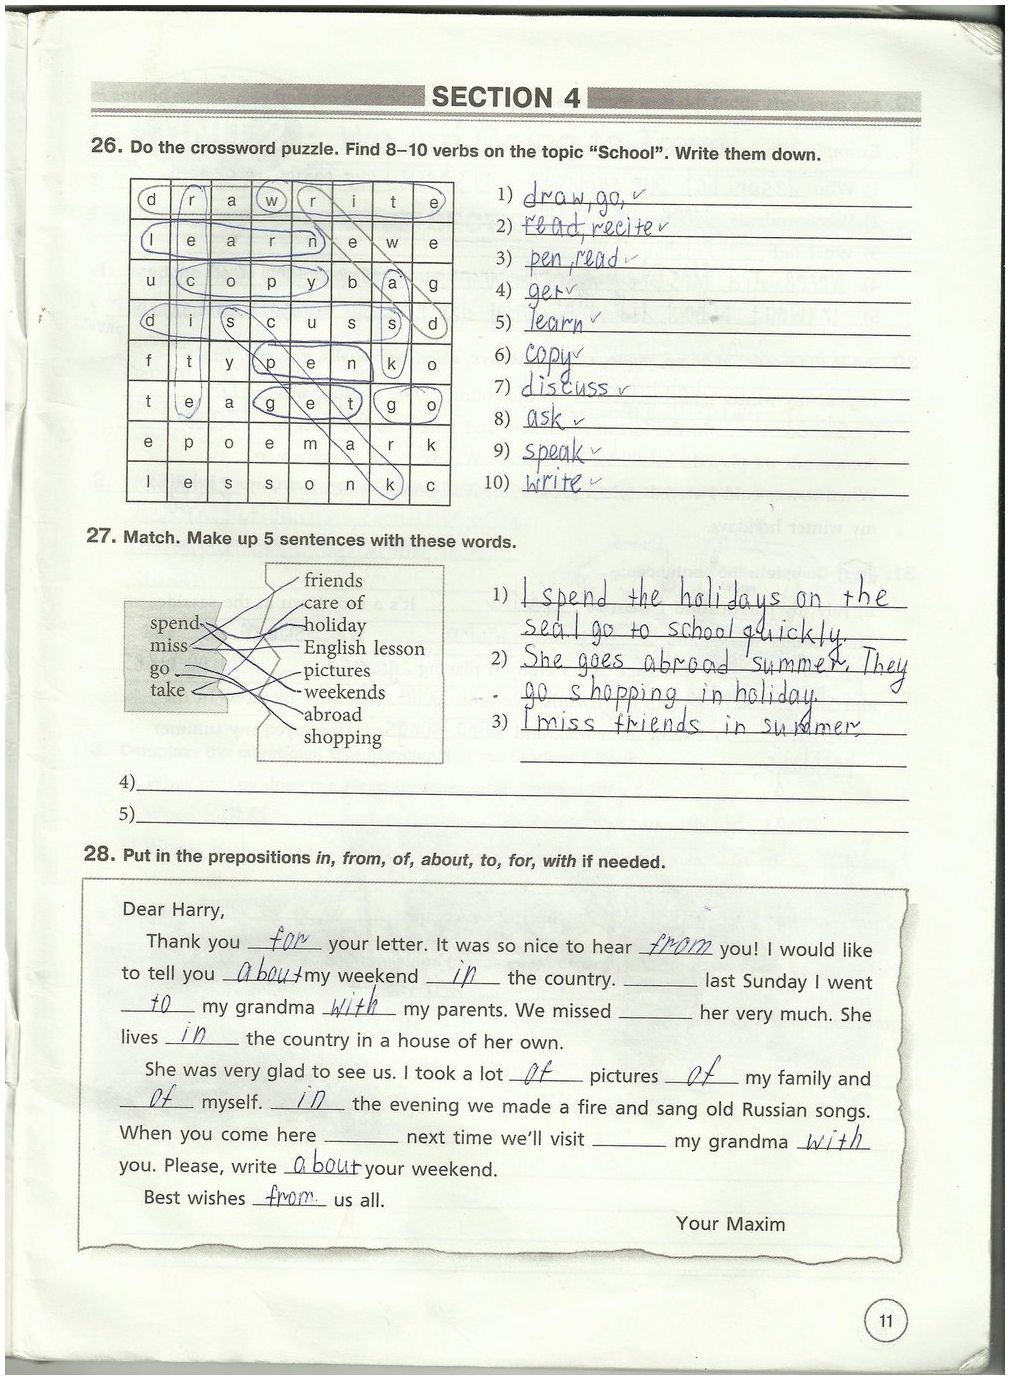 SECTION 4
26. Do the crossword puzzle. Find 8–10 verbs on the topic “School”. Write them down.
d r a w r i t e
l e a r n e w e
u c o p y b a g
d i s c u s s d
f t y p e n k o
t e a g e t g o
e p o e m a r k
l e s s o n k c
1) draw, go,
2) read, recite
3) pen, read
4) get
5) learn
6) copy
7) discuss
8) ask
9) speak
10) write
27. Match. Make up 5 sentences with these words.
spend
miss
go
take
friends
care of
holiday
English lesson
pictures
weekends
abroad
shopping
1) I spend the holidays on the
sea. I go to school quickly.
2) She goes abroad summer. They
go shopping in holiday.
3) I miss friends in summer.
4)
5)
28. Put in the prepositions in, from, of, about, to, for, with if needed.
Dear Harry,
Thank you for your letter. It was so nice to hear from you! I would like
to tell you about my weekend in the country. ______ last Sunday I went
to my grandma with my parents. We missed ______ her very much. She
lives in the country in a house of her own.
She was very glad to see us. I took a lot of pictures of my family and
of myself. in the evening we made a fire and sang old Russian songs.
When you come here ______ next time we’ll visit ______ my grandma with
you. Please, write about your weekend.
Best wishes from us all.
Your Maxim
11